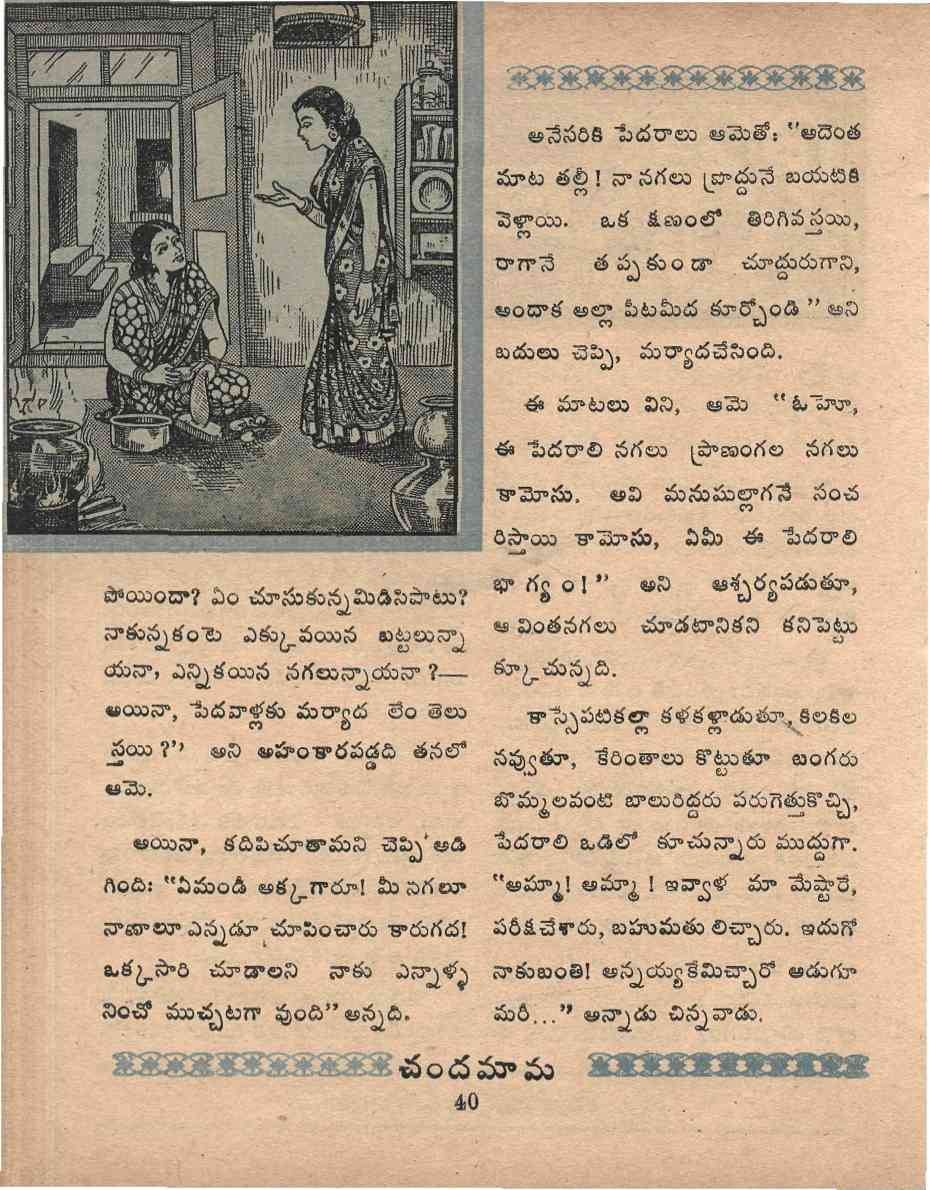 పోయిందా? ఏం చూసుకున్నమిడిసిపాటు?
నాకున్నకంటె ఎక్కువయిన బట్టలున్నా
యనా, ఎన్నికయిన నగలున్నాయనా?—
అయినా, పేదవాళ్లకు మర్యాద లేం తెలు
స్తయి?'' అని అహంకారపడ్డది తనలో
ఆమె.
అయినా, కదిపిచూతామని చెప్పి అడి
గింది: "ఏమండీ అక్కగారూ! మీ నగలూ
నాణాలూ ఎన్నడూ చూపించారు కారుగద!
ఒక్కసారి చూడాలని నాకు ఎన్నాళ్ళ
నించో ముచ్చటగా వుంది" అన్నది.
అనేసరికి పేదరాలు ఆమెతో: "అదెంత
మాట తల్లీ! నా నగలు ప్రొద్దునే బయటికి
వెళ్లాయి. ఒక క్షణంలో తిరిగివస్తయి,
రాగానే తప్పకుండా చూద్దురుగాని,
అందాక అల్లా పీటమీద కూర్చోండి" అని
బదులు చెప్పి, మర్యాదచేసింది.
ఈ మాటలు విని, ఆమె "ఓహో,
ఈ పేదరాలి నగలు ప్రాణంగల నగలు
కామోసు. అవి మనుషుల్లాగనే సంచ
రిస్తాయి కామోసు, ఏమీ ఈ పేదరాలి
భాగ్యం!" అని ఆశ్చర్యపడుతూ,
ఆ వింతనగలు చూడటానికని కనిపెట్టు
క్కూచున్నది.
కాస్సేపటికల్లా కళకళ్లాడుతూ, కిలకిల
నవ్వుతూ, కేరింతాలు కొట్టుతూ బంగరు
బొమ్మలవంటి బాలురిద్దరు పరుగెత్తుకొచ్చి,
పేదరాలి ఒడిలో కూచున్నారు ముద్దుగా.
"అమ్మా! అమ్మా! ఇవ్వాళ మా మేష్టారే,
పరీక్షచేశారు, బహుమతు లిచ్చారు. ఇదుగో
నాకుబంతి! అన్నయ్యకేమిచ్చారో అడుగూ
మరీ..." అన్నాడు చిన్నవాడు.
చందమామ
40